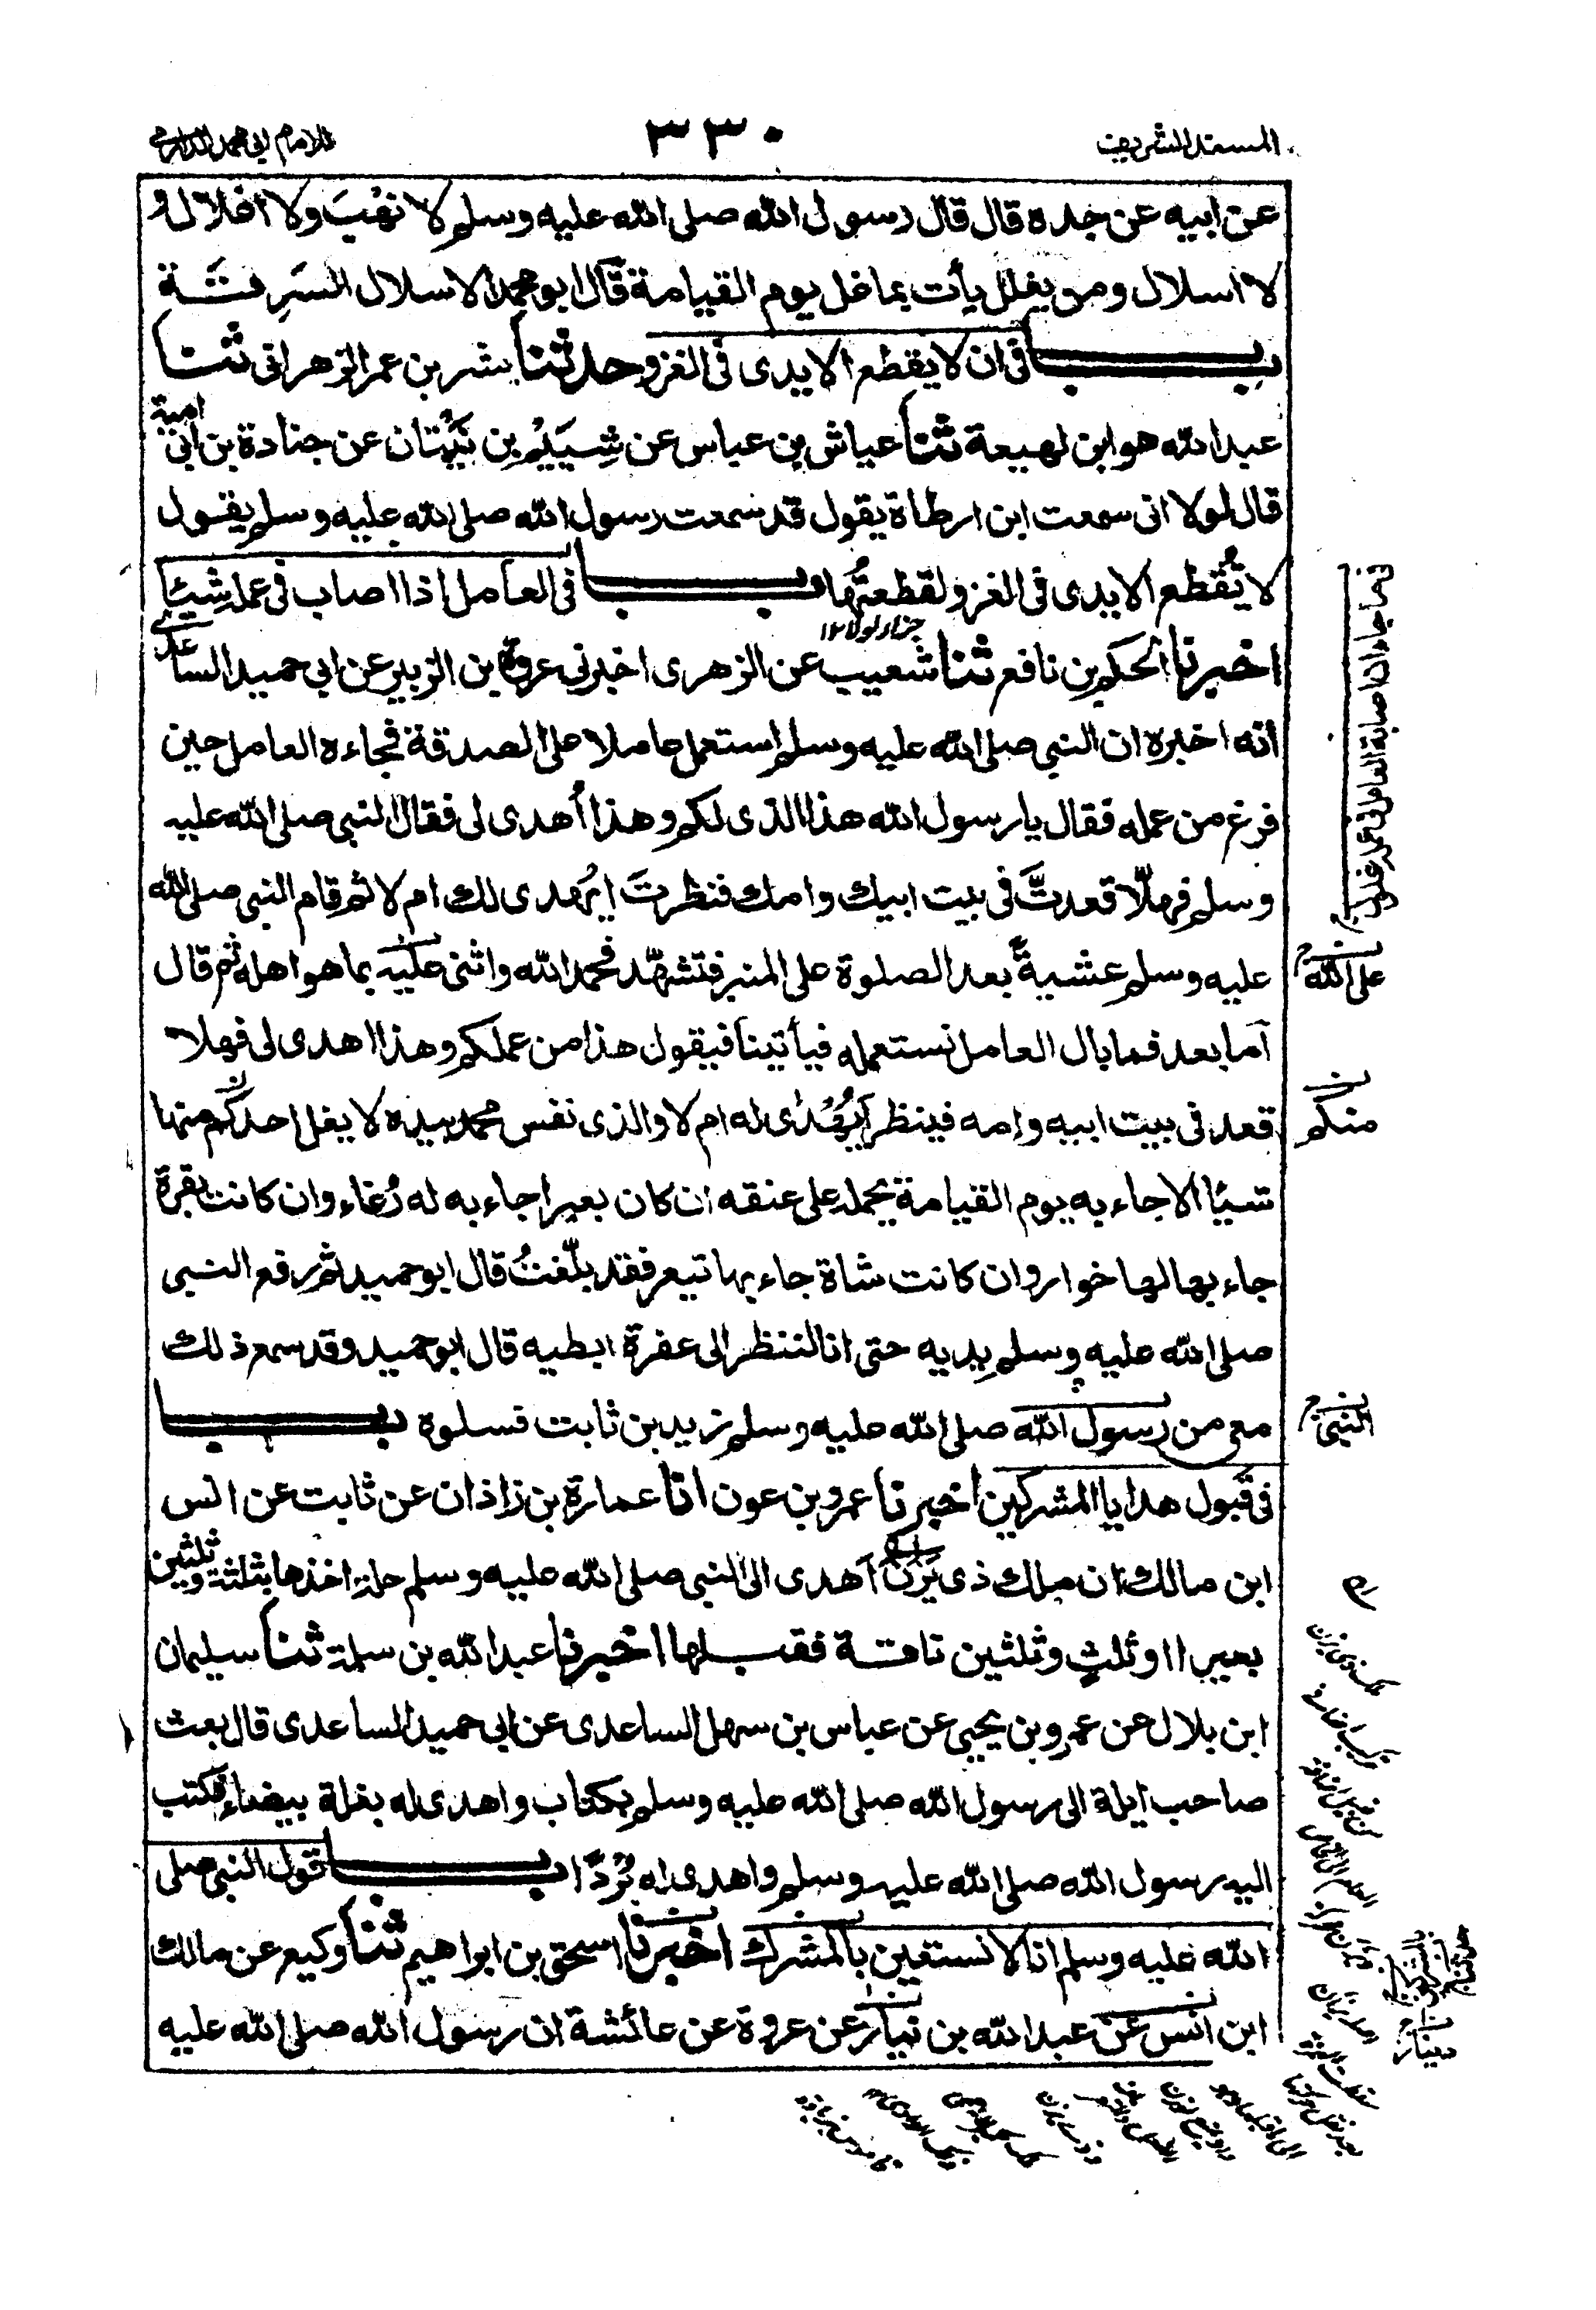 المسند الشريف
٣٣٠
للامام ابي محمد الدارمي
عن ابيه عن جده قال قال رسول الله صلى الله عليه وسلم لا نَهْبَ ولا اغلال و
لا اسلال ومن يغلل يأت بما غل يوم القيامة قال ابو محمد الاسلال السَرِقة
باب فى ان لا يقطع الايدى فى الغزو حدثنا بشر بن عمر الزهرانى ثنا
عبد الله هو ابن لهيعة ثنا عياش بن عباس عن شِيَيْمِ بن بَيْتان عن جنادة بن ابى امية
قال لولا انى سمعت ابن ارطاة يقول قد سمعت رسول الله صلى الله عليه وسلم يقول
لا تُقطع الايدى فى الغزو لقطعتُها باب فى العامل اذا اصاب فى عمله شيئا
جزاء لولا ١٢
اخبرنا الحكم بن نافع ثنا شعيب عن الزهرى اخبرنى عروة بن الزبير عن ابى حميد الساعدى
أنه اخبره ان النبى صلى الله عليه وسلم استعمل عاملا على الصدقة فجاءه العامل حين
فرغ من عمله فقال يا رسول الله هذا الذى لكم وهذا أُهدى لى فقال النبى صلى الله عليه
وسلم فهلّا قعدتَّ فى بيت ابيك وامك فنظرتَ ايُهدى لك ام لا ثم قام النبى صلى الله
عليه وسلم عشيةً بعد الصلوة على المنبر فتشهّد فحمد الله واثنى عليه بما هو اهله ثم قال
على الله
أما بعد فما بال العامل نستعمله فيأتينا فيقول هذا من عملكم وهذا اهدى لى فهلا
قعد فى بيت ابيه وامه فينظر أيُهْدٰى له ام لا والذى نفس محمد بيده لا يغل احدكم منها
منكم
شيئا الا جاء به يوم القيامة يحمله على عنقه ان كان بعيرا جاء به له رُغاء وان كانت بقرة
جاء بها لها خوار وان كانت شاة جاء بها تيعر فقد بلّغتُ قال ابو حميد ثم رفع النبى
صلى الله عليه وسلم يديه حتى انا لننظر الى عفرة ابطيه قال ابو حميد وقد سمع ذلك
معى من رسول الله صلى الله عليه وسلم زيد بن ثابت فسلوه باب
النبى
فى قَبول هدايا المشركين اخبرنا عمرو بن عون انا عمارة بن زاذان عن ثابت عن انس
ابن مالك ان ملك ذى يَزَن أهدى الى النبى صلى الله عليه وسلم حلة اخذها بثلثة وثلثين
بعيرا او ثلثٍ وثلثين ناقة فقبلها اخبرنا عبد الله بن سلمة ثنا سليمان
ابن بلال عن عمرو بن يحيى عن عباس بن سهل الساعدى عن ابى حميد الساعدى قال بعث
صاحب أيلة الى رسول الله صلى الله عليه وسلم بكتاب واهدى له بغلة بيضاء فكتب
اليه رسول الله صلى الله عليه وسلم واهدى له بُردًا باب قول النبى صلى
الله عليه وسلم انا لا نستعين بالمشرك اخبرنا اسحق بن ابراهيم ثنا وكيع عن مالك
ابن انس عن عبد الله بن نيار عن عروة عن عائشة ان رسول الله صلى الله عليه
دينار